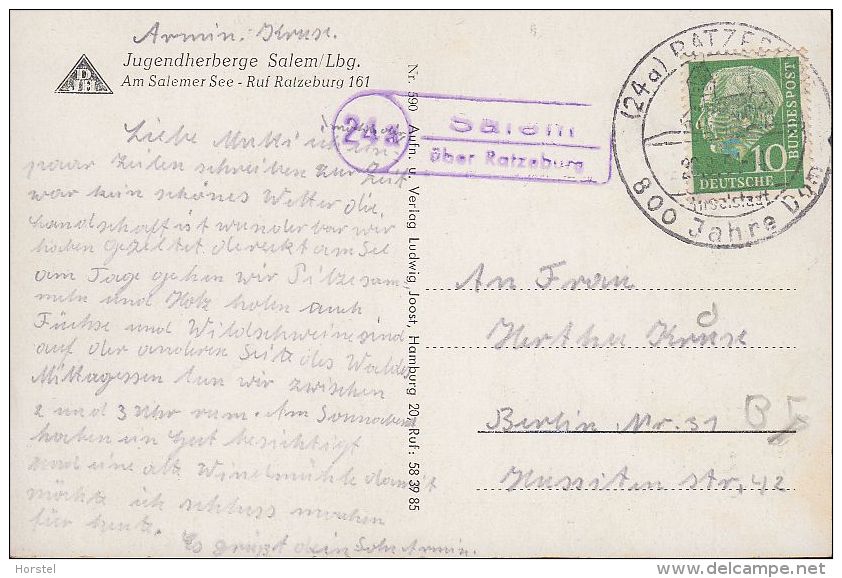 Armin. Kruse.
Jugendherberge Salem/Lbg.
Am Salemer See - Ruf Ratzeburg 161
Nr. 590 Aufn. u. Verlag Ludwig Joost, Hamburg 20, Ruf: 58 39 85
24a
Salem
über Ratzeburg
(24a) RATZEB
800 Jahre Dom
Inselstadt
10
DEUTSCHE
BUNDESPOST
Liebe Mutti ich
paar Zeilen schreiben zur Zeit
war kein schönes Wetter die
Landschaft ist wunderbar wir
haben Gezeltet dereckt am See
am Tage gehen wir Pilze sam-
meln und Holz holen auch
Füchse und Wildschweine sind
auf der anderen Seite des Waldes
Mittagessen tun wir zwischen
2 und 3 Uhr rum. Am Sonnabend
haben ein Gut besichtigt
und eine alte Winelmühle damit
möchte ich schluss machen
für heute.
Es grüßt dein Sohn Armin.
An Frau
Hertha Kruse
Berlin Nr. 31
Hussiten str, 42
Horstel
www.delcampe.net